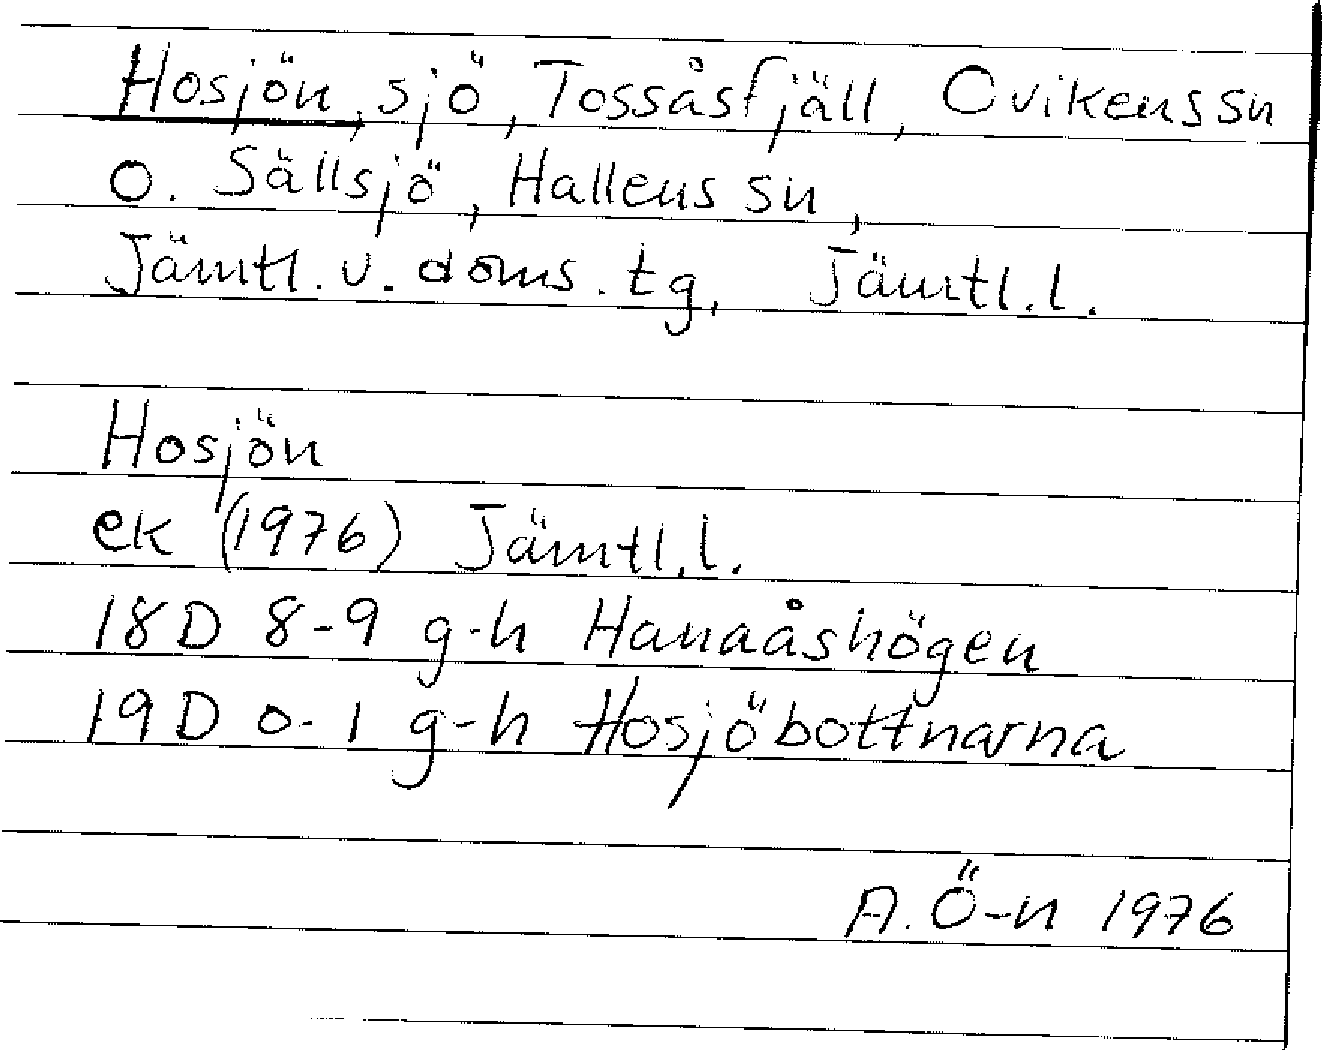 Hosjön, sjö, Tossåsfjäll, Ovikens sn
o. Sällsjö, Hallens sn,
Jämtl. v. doms. tg, Jämtl. l.
Hosjön
ek (1976) Jämtl. l.
18D 8-9 g-h Hanaåshögen
19D 0-1 g-h Hosjöbottnarna
A. Ö-n 1976